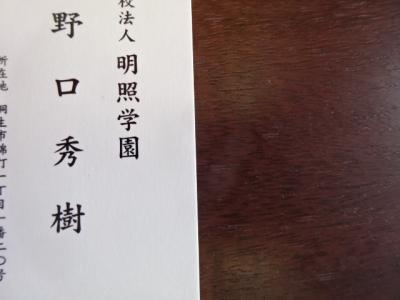 校法人 明照学園
野口秀樹
所在地 桐生市錦町一丁目一番二〇号